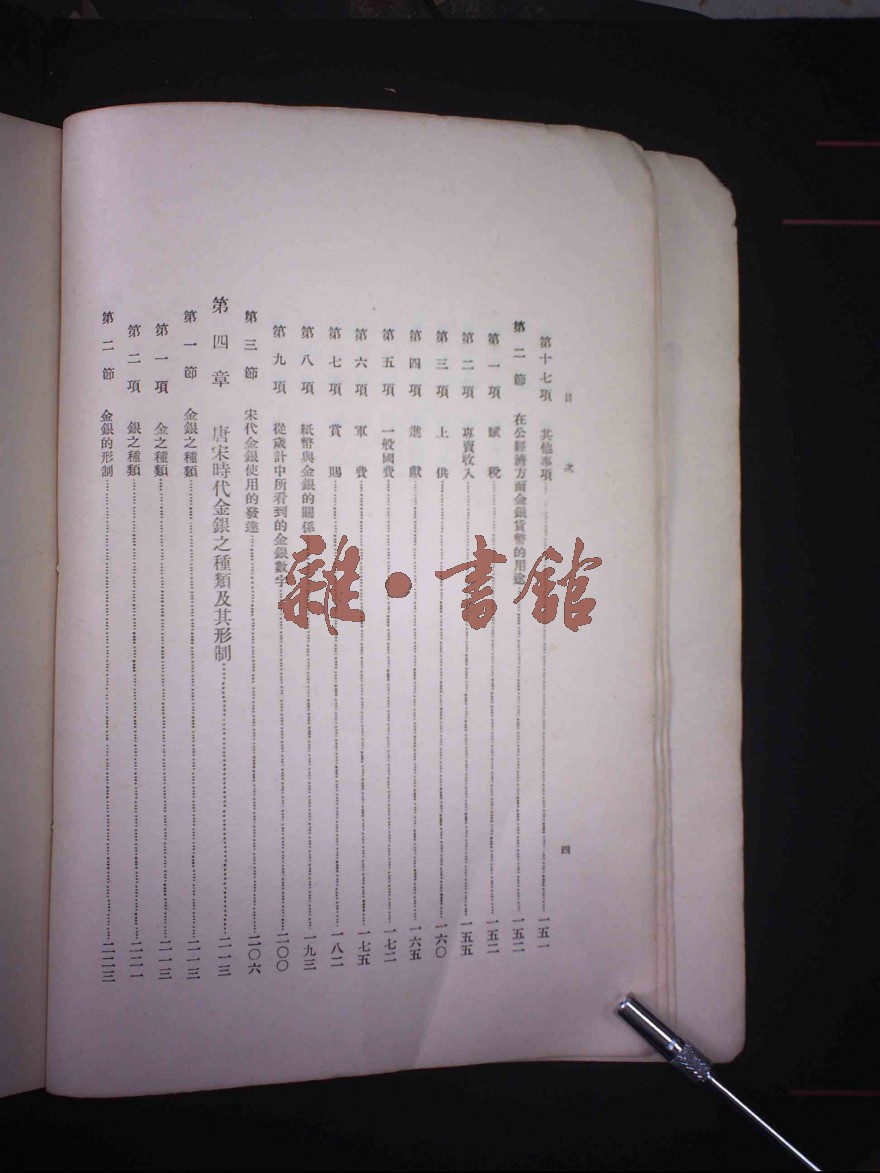 目次
四
第十七項 其他事項……一五一
第二節 在公經濟方面金銀貨幣的用途……一五二
第一項 賦稅……一五二
第二項 專賣收入……一五五
第三項 上供……一六〇
第四項 進獻……一六五
第五項 一般國費……一七二
第六項 軍費……一七五
第七項 賞賜……一八二
第八項 紙幣與金銀的關係……一九三
第九項 從歲計中所看到的金銀數字……二〇〇
第三節 宋代金銀使用的發達……二〇六
第四章 唐宋時代金銀之種類及其形制……二一三
第一節 金銀之種類……二一三
第一項 金之種類……二一三
第二項 銀之種類……二二一
第二節 金銀的形制……二二三
雜·書館